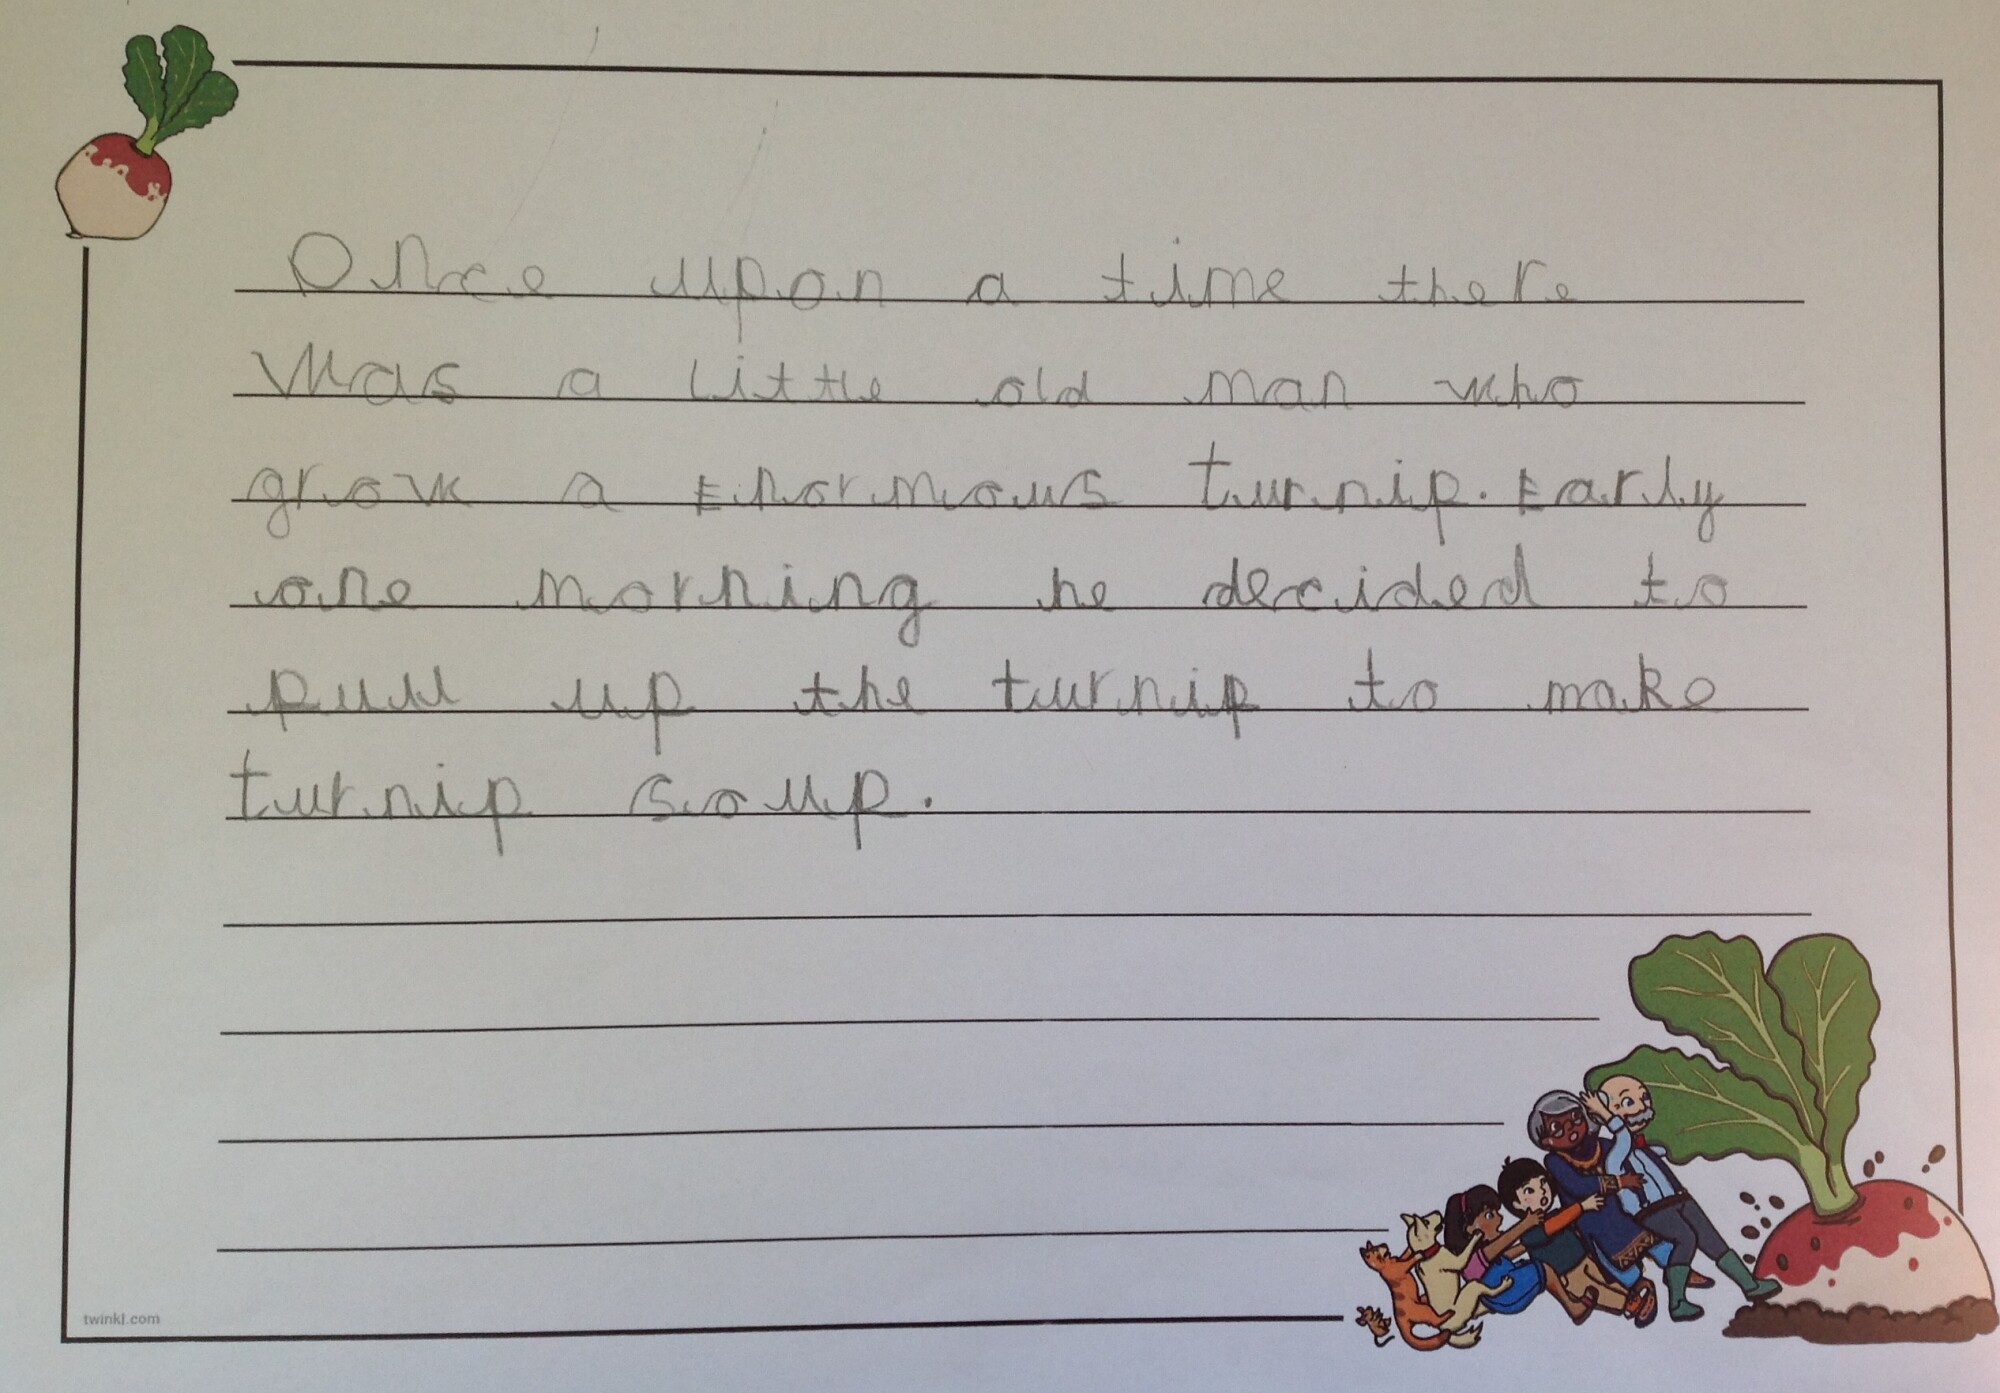 Once upon a time there
was a little old man who
grow a Enormous turnip. Early
one morning he decided to
pull up the turnip to make
turnip soup.
twinkl.com